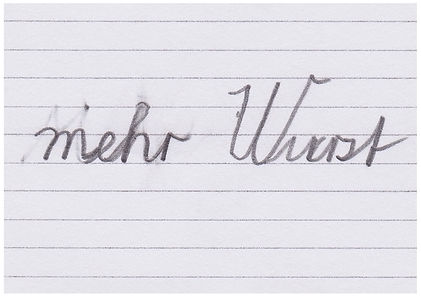 mehr Wurst